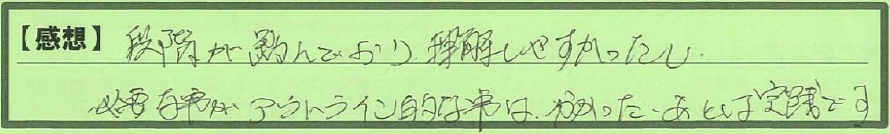 【感想】段階が踏んでおり、理解しやすかったし、
必要な事がアウトライン的な事は、分かった、あとは実践です